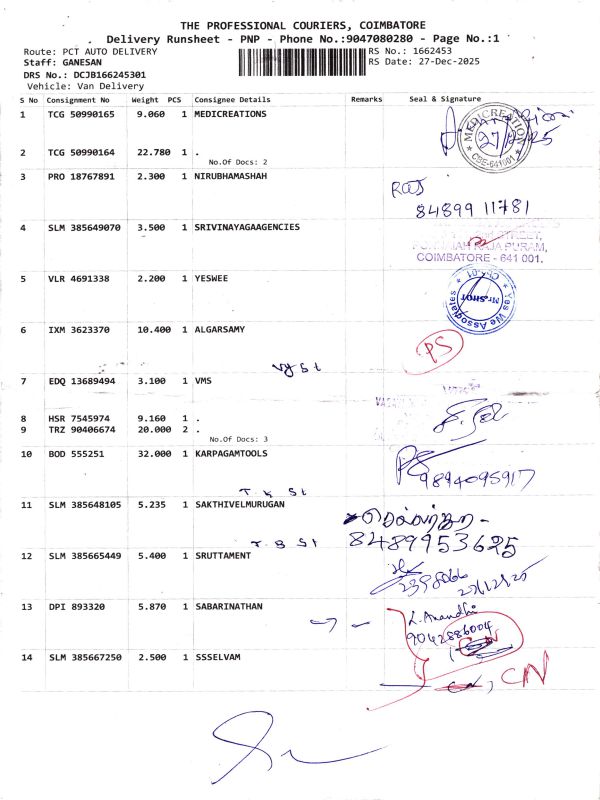 THE PROFESSIONAL COURIERS, COIMBATORE
Delivery Runsheet - PNP - Phone No.:9047080280 - Page No.:1
Route: PCT AUTO DELIVERY RS No.: 1662453
Staff: GANESAN RS Date: 27-Dec-2025
DRS No.: DCJB166245301
Vehicle: Van Delivery
S No Consignment No Weight PCS Consignee Details Remarks Seal & Signature
1 TCG 50990165 9.060 1 MEDICREATIONS
MEDICREATION
CBE-641001
2 TCG 50990164 22.780 1 .
No.Of Docs: 2
3 PRO 18767891 2.300 1 NIRUBHAMASHAH
Raj
84899 11781
4 SLM 385649070 3.500 1 SRIVINAYAGAAGENCIES
STREET,
RAJA PURAM,
COIMBATORE - 641 001.
5 VLR 4691338 2.200 1 YESWEE
Yes We Associates
6 IXM 3623370 10.400 1 ALGARSAMY
PS
7 EDQ 13689494 3.100 1 VMS
8 HSR 7545974 9.160 1 .
9 TRZ 90406674 20.000 2 .
No.Of Docs: 3
10 BOD 555251 32.000 1 KARPAGAMTOOLS
PS
9894095917
T K St
11 SLM 385648105 5.235 1 SAKTHIVELMURUGAN
8489953625
12 SLM 385665449 5.400 1 SRUTTAMENT
2398066
27/12/25
13 DPI 893320 5.870 1 SABARINATHAN
L. Anandhi
9042886004
14 SLM 385667250 2.500 1 SSSELVAM
CN